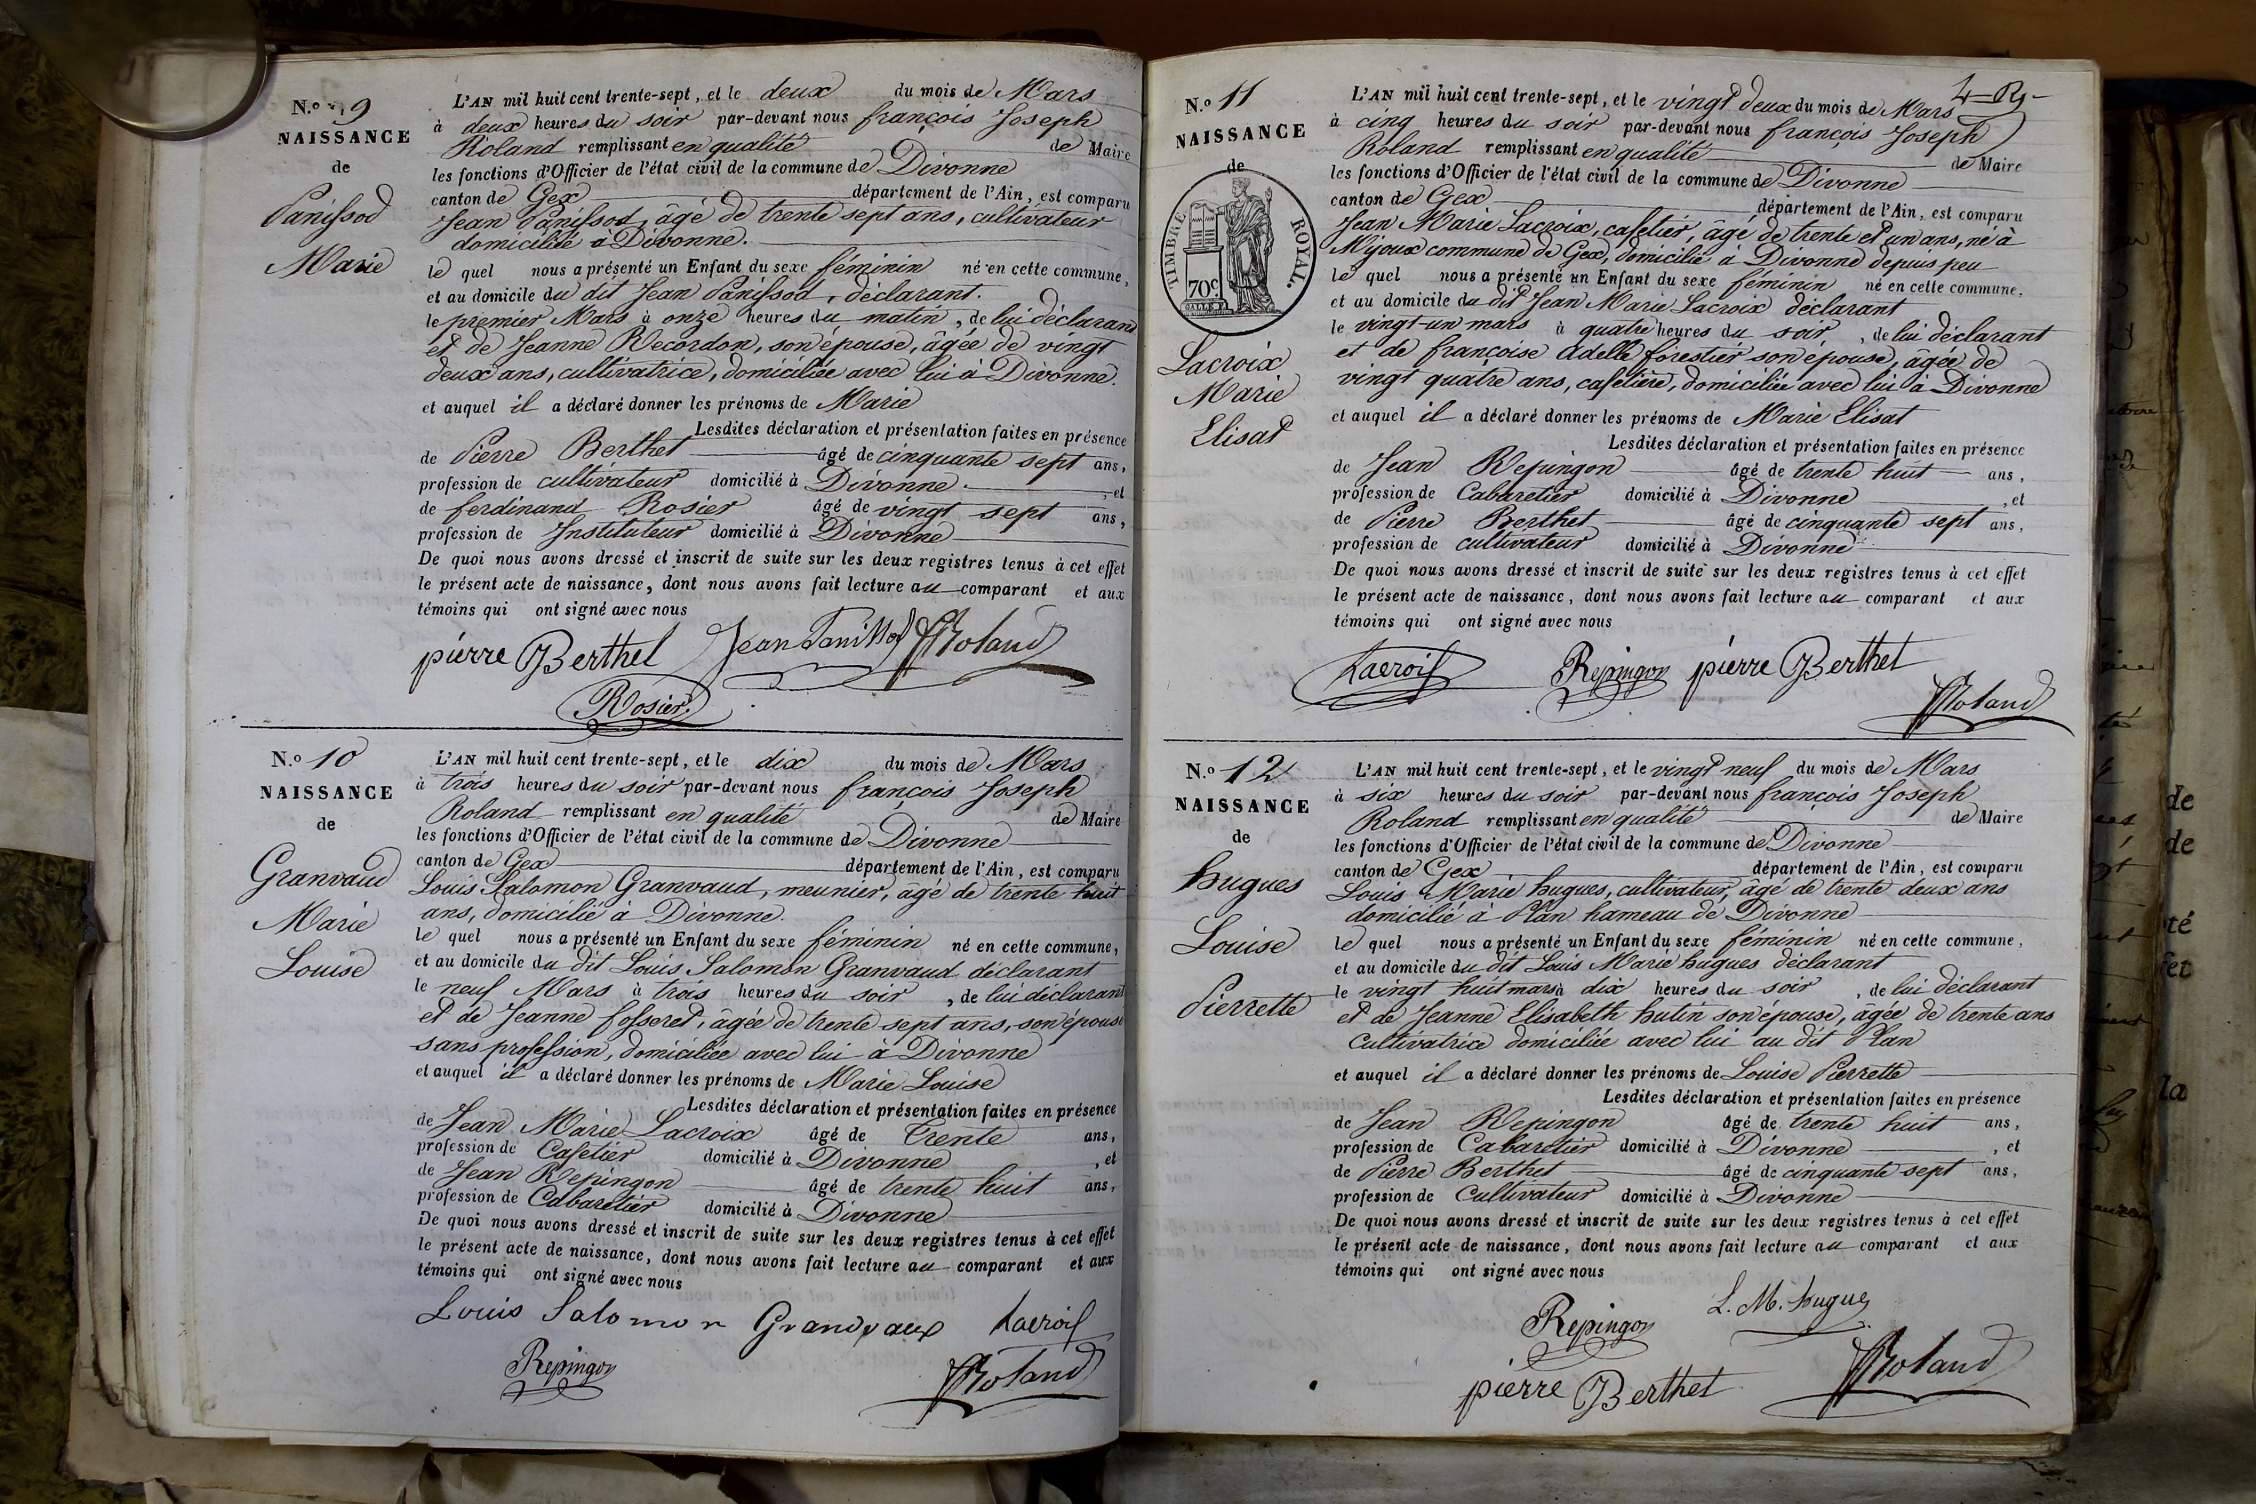 N.º 9
NAISSANCE
de
Panissod
Marie
L'AN mil huit cent trente-sept, et le deux du mois de Mars
à deux heures du soir par-devant nous françois Joseph
Roland remplissant en qualité de Maire
les fonctions d'Officier de l'état civil de la commune de Divonne
canton de Gex département de l'Ain, est comparu
Jean Panissod, âgé de trente sept ans, cultivateur
domicilié à Divonne.
le quel nous a présenté un Enfant du sexe féminin né en cette commune,
et au domicile du dit Jean Panissod, déclarant.
le premier Mars à onze heures du matin, de lui déclarant
et de Jeanne Recordon, son épouse, âgée de vingt
deux ans, cultivatrice, domiciliée avec lui à Divonne.
et auquel il a déclaré donner les prénoms de Marie
Lesdites déclaration et présentation faites en présence
de Pierre Berthet âgé de cinquante sept ans,
profession de cultivateur domicilié à Divonne, et
de ferdinand Rosier âgé de vingt sept ans,
profession de Instituteur domicilié à Divonne
De quoi nous avons dressé et inscrit de suite sur les deux registres tenus à cet effet
le présent acte de naissance, dont nous avons fait lecture au comparant et aux
témoins qui ont signé avec nous
pierre Berthet Jean Panissod Roland
Rosier
N.º 10
NAISSANCE
de
Granvaud
Marie
Louise
L'AN mil huit cent trente-sept, et le dix du mois de Mars
à trois heures du soir par-devant nous françois Joseph
Roland remplissant en qualité de Maire
les fonctions d'Officier de l'état civil de la commune de Divonne
canton de Gex département de l'Ain, est comparu
Louis Salomon Granvaud, meunier, âgé de trente huit
ans, domicilié à Divonne.
le quel nous a présenté un Enfant du sexe féminin né en cette commune,
et au domicile du dit Louis Salomon Granvaud déclarant
le neuf Mars à trois heures du soir, de lui déclarant
et de Jeanne fosseret, âgée de trente sept ans, son épouse
sans profession, domiciliée avec lui à Divonne
et auquel il a déclaré donner les prénoms de Marie Louise
Lesdites déclaration et présentation faites en présence
de Jean Marie Lacroix âgé de Trente ans,
profession de Cafetier domicilié à Divonne, et
de Jean Repingon âgé de trente huit ans,
profession de Cabaretier domicilié à Divonne
De quoi nous avons dressé et inscrit de suite sur les deux registres tenus à cet effet
le présent acte de naissance, dont nous avons fait lecture au comparant et aux
témoins qui ont signé avec nous
Louis Salomon Grandvaux Lacroix
Repingon Roland
N.º 11
NAISSANCE
de
TIMBRE ROYAL.
70c
Lacroix
Marie
Elisat
L'AN mil huit cent trente-sept, et le vingt deux du mois de Mars
à cinq heures du soir par-devant nous françois Joseph
Roland remplissant en qualité de Maire
les fonctions d'Officier de l'état civil de la commune de Divonne
canton de Gex département de l'Ain, est comparu
Jean Marie Lacroix, cafetier, âgé de trente et un ans, né à
Mijoux commune de Gex, domicilié à Divonne depuis peu
le quel nous a présenté un Enfant du sexe féminin né en cette commune,
et au domicile du dit Jean Marie Lacroix déclarant
le vingt-un mars à quatre heures du soir, de lui déclarant
et de françoise Adelle forestier son épouse, âgée de
vingt quatre ans, cafetière, domiciliée avec lui à Divonne
et auquel il a déclaré donner les prénoms de Marie Elisat
Lesdites déclaration et présentation faites en présence
de Jean Repingon âgé de trente huit ans,
profession de Cabaretier domicilié à Divonne, et
de Pierre Berthet âgé de cinquante sept ans,
profession de cultivateur domicilié à Divonne
De quoi nous avons dressé et inscrit de suite sur les deux registres tenus à cet effet
le présent acte de naissance, dont nous avons fait lecture au comparant et aux
témoins qui ont signé avec nous
Lacroix Repingon pierre Berthet
Roland
N.º 12
NAISSANCE
de
hugues
Louise
Pierrette
L'AN mil huit cent trente-sept, et le vingt neuf du mois de Mars
à six heures du soir par-devant nous françois Joseph
Roland remplissant en qualité de Maire
les fonctions d'Officier de l'état civil de la commune de Divonne
canton de Gex département de l'Ain, est comparu
Louis Marie hugues, cultivateur, âgé de trente deux ans
domicilié à Plan hameau de Divonne
le quel nous a présenté un Enfant du sexe féminin né en cette commune,
et au domicile du dit Louis Marie hugues déclarant
le vingt huit mars à dix heures du soir, de lui déclarant
et de Jeanne Elisabeth hutin son épouse, âgée de trente ans
Cultivatrice domiciliée avec lui au dit Plan
et auquel il a déclaré donner les prénoms de Louise Pierrette
Lesdites déclaration et présentation faites en présence
de Jean Repingon âgé de trente huit ans,
profession de Cabaretier domicilié à Divonne, et
de Pierre Berthet âgé de cinquante sept ans,
profession de Cultivateur domicilié à Divonne
De quoi nous avons dressé et inscrit de suite sur les deux registres tenus à cet effet
le présent acte de naissance, dont nous avons fait lecture au comparant et aux
témoins qui ont signé avec nous
Repingon L. M. hugues
pierre Berthet Roland